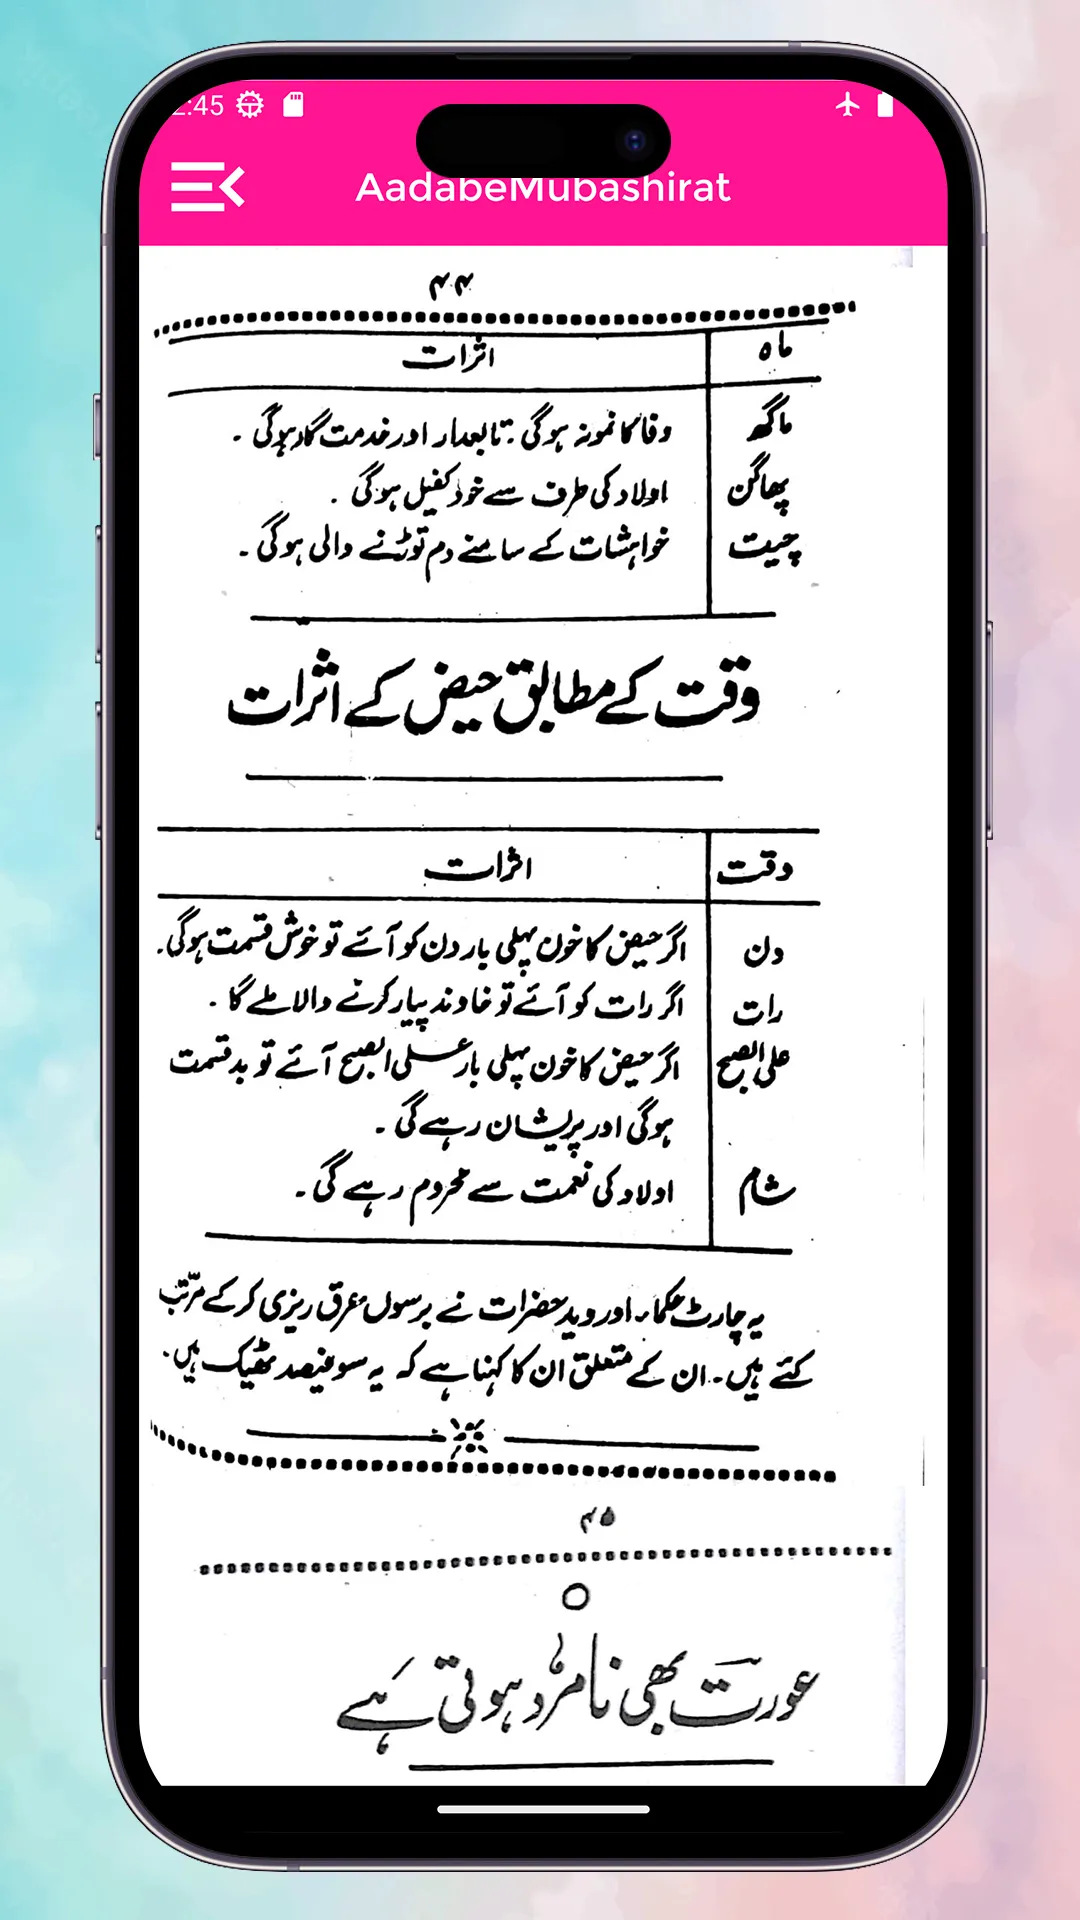 2:45
AadabeMubashirat
۴۴
ماہ اثرات
ماگھ وفا کا نمونہ ہوگی۔ تابعدار اور خدمت گار ہوگی۔
پھاگن اولاد کی طرف سے خود کفیل ہوگی۔
چیت خواہشات کے سامنے دم توڑنے والی ہوگی۔
وقت کے مطابق حیض کے اثرات
وقت اثرات
دن اگر حیض کا خون پہلی بار دن کو آئے تو خوش قسمت ہوگی۔
رات اگر رات کو آئے تو خاوند پیار کرنے والا ملے گا۔
علی الصبح اگر حیض کا خون پہلی بار علی الصبح آئے تو بدقسمت
ہوگی اور پریشان رہے گی۔
شام اولاد کی نعمت سے محروم رہے گی۔
یہ چارٹ حکماء اور وید حضرات نے برسوں عرق ریزی کر کے مرتب
کئے ہیں۔ ان کے متعلق ان کا کہنا ہے کہ یہ سو فیصد ٹھیک ہیں۔
۴۵
عورت بھی نامرد ہوتی ہے